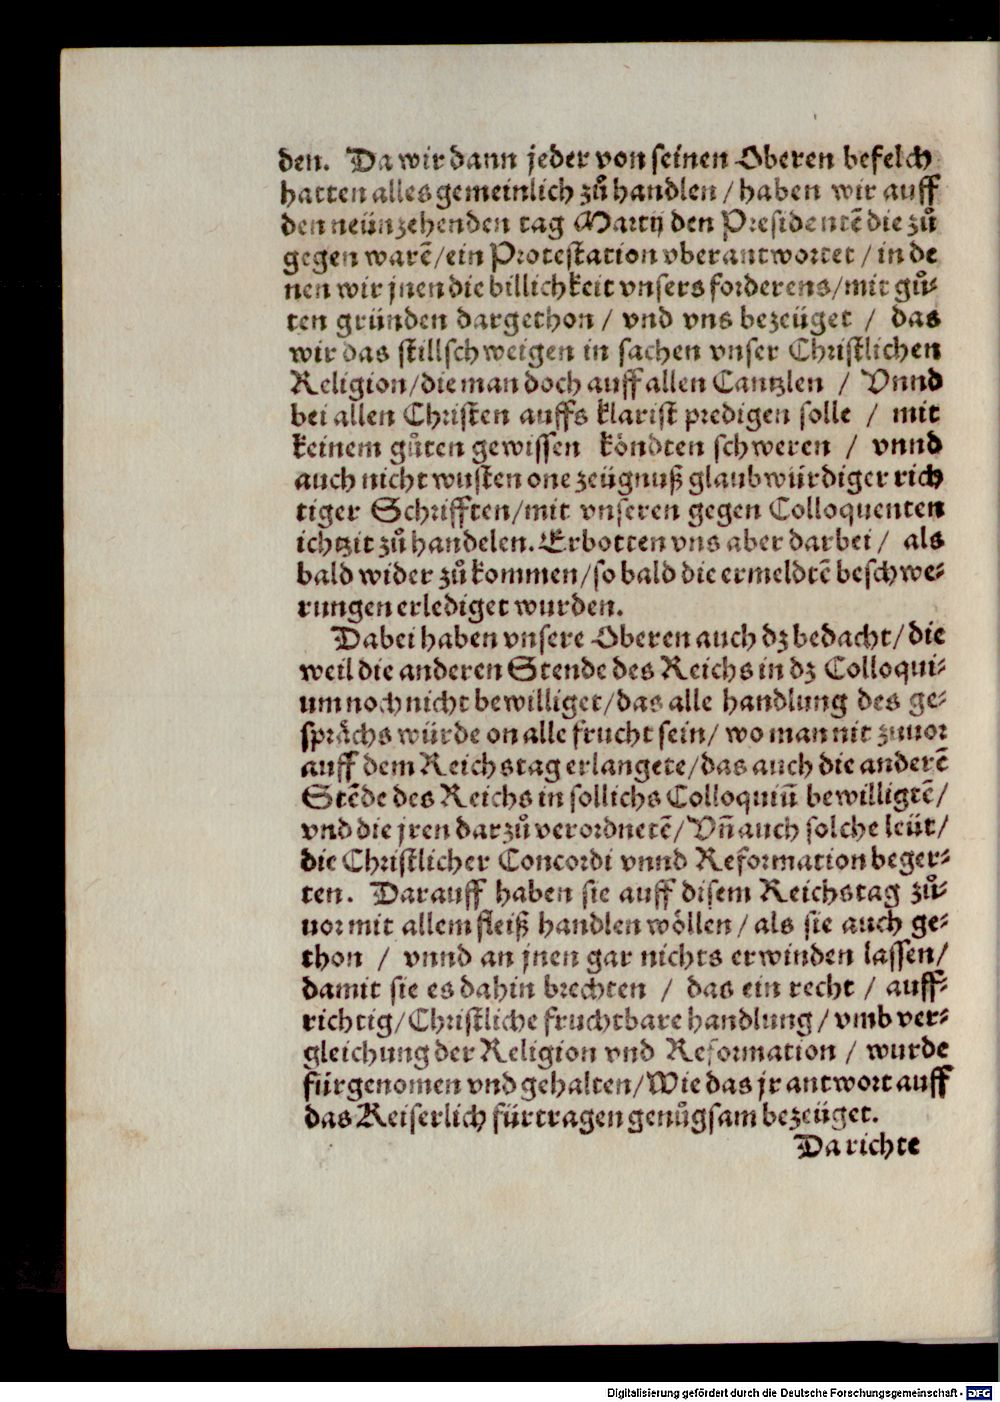 den. Da wir dann jeder von seinen Oberen befelch
hatten alles gemeinlich zů handlen / haben wir auff
den neünzehenden tag Martij den Presidentẽ die zů
gegen warẽ / ein Protestation vberantwortet / in de
nen wir jnen die billichkeit vnsers forderens / mit gů⸗
ten gründen dargethon / vnd vns bezeüget / das
wir das stillschweigen in sachen vnser Christlichen
Religion / die man doch auff allen Cantzlen / Vnnd
bei allen Christen auffs klarist predigen solle / mit
keinem gůten gewissen köndten schweren / vnnd
auch nicht wusten one zeügnuß glaubwürdiger rich
tiger Schrifften / mit vnseren gegen Colloquenten
ichtzit zů handelen. Erbotten vns aber darbei / als
bald wider zů kommen / so bald die ermeldtẽ beschwe⸗
rungen erlediget wurden.
Dabei haben vnsere Oberen auch dz bedacht / die
weil die anderen Stende des Reichs in dz Colloqui⸗
um noch nicht bewilliget / das alle handlung des ge⸗
sprächs würde on alle frucht sein / wo man nit zuuor
auff dem Reichstag erlangete / das auch die anderẽ
Stẽde des Reichs in sollichs Colloquiũ bewilligtẽ /
vnd die jren darzů verordnetẽ / Vñ auch solche leüt /
die Christlicher Concordi vnnd Reformation beger⸗
ten. Darauff haben sie auff disem Reichstag zů⸗
uor mit allem fleiß handlen wöllen / als sie auch ge⸗
thon / vnnd an jnen gar nichts erwinden lassen /
damit sie es dahin brechten / das ein recht / auff⸗
richtig / Christliche fruchtbare handlung / vmb ver⸗
gleichung der Religion vnd Reformation / wurde
fürgenomen vnd gehalten / Wie das jr antwort auff
das Keiserlich fürtragen genůgsam bezeüget.
Da richte
Digitalisierung gefördert durch die Deutsche Forschungsgemeinschaft - DFG